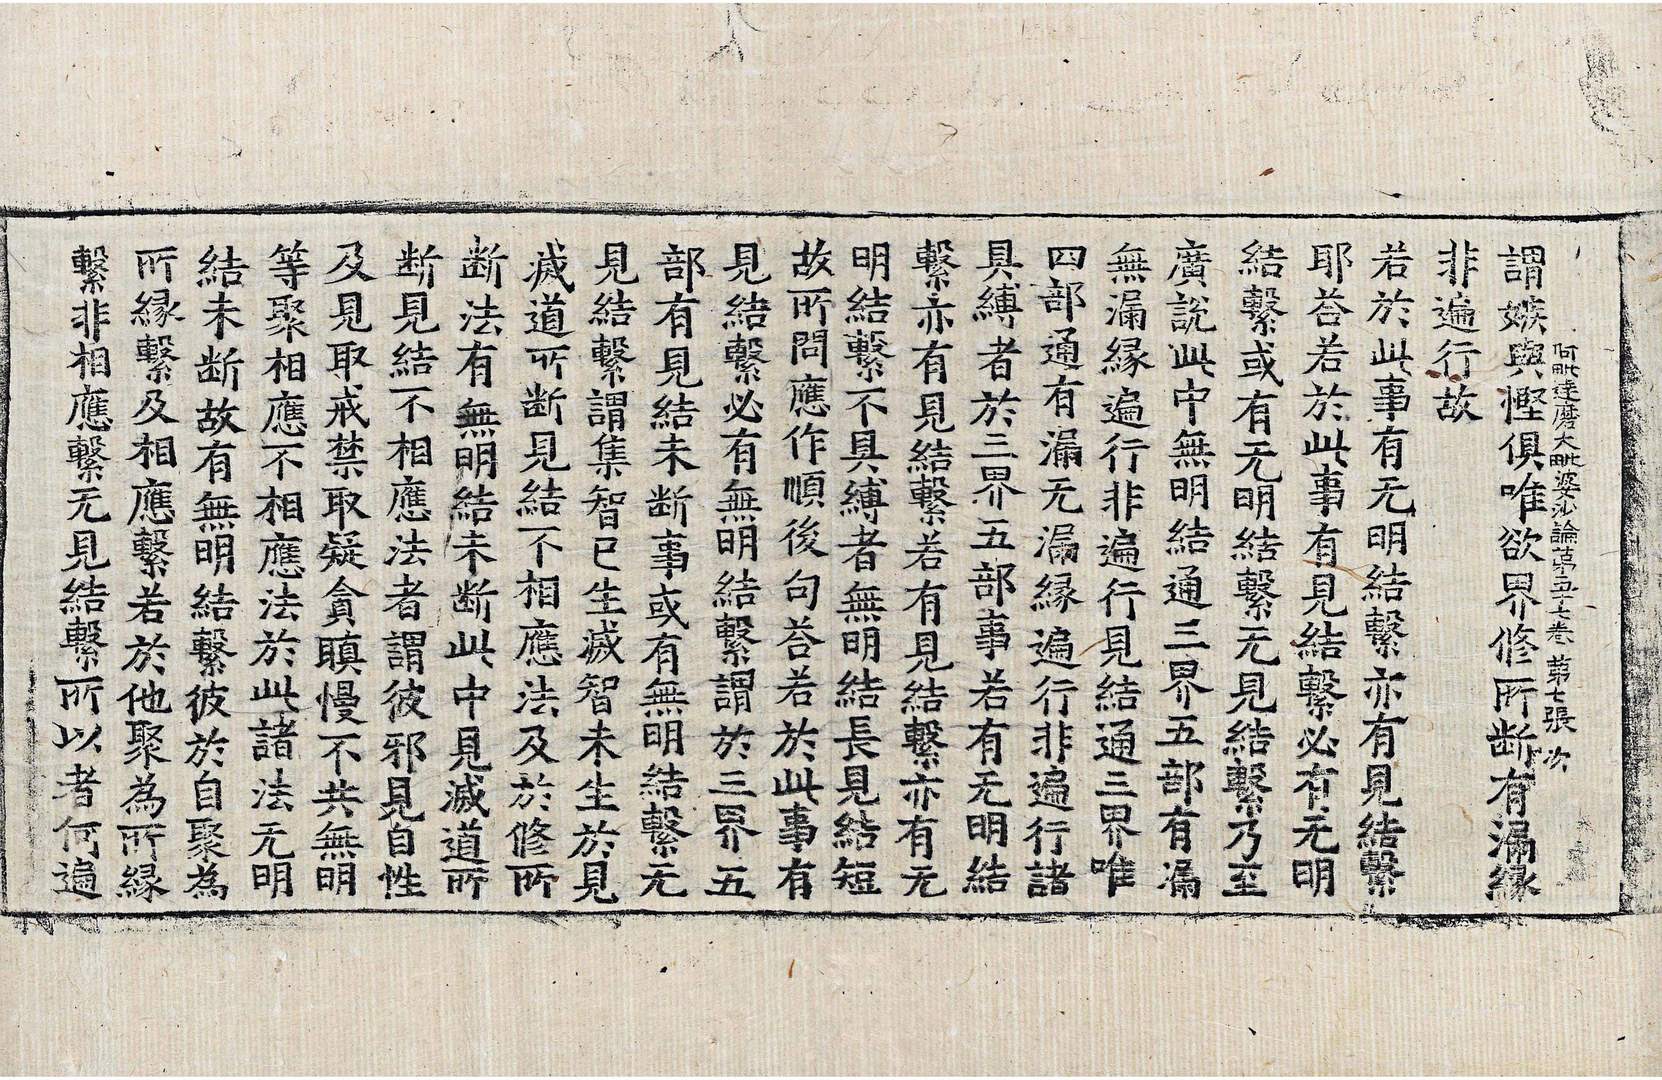 阿毗達磨大毗婆沙論第五十七卷 第七張 次
謂嫉與慳俱唯欲界修所斷有漏緣
非遍行故
若於此事有无明結繫亦有見結繫
耶荅若於此事有見結繫必有无明
結繫或有无明結繫无見結繫乃至
廣說此中無明結通三界五部有漏
無漏緣遍行非遍行見結通三界唯
四部通有漏无漏緣遍行非遍行諸
具縛者於三界五部事若有无明結
繫亦有見結繫若有見結繫亦有无
明結繫不具縛者無明結長見結短
故所問應作順後句荅若於此事有
見結繫必有無明結繫謂於三界五
部有見結未斷事或有無明結繫无
見結繫謂集智已生滅智未生於見
滅道所斷見結不相應法及於修所
斷法有無明結未斷此中見滅道所
斷見結不相應法者謂彼邪見自性
及見取戒禁取疑貪瞋慢不共無明
等聚相應不相應法於此諸法无明
結未斷故有無明結繫彼於自聚為
所緣繫及相應繫若於他聚為所緣
繫非相應繫无見結繫所以者何遍